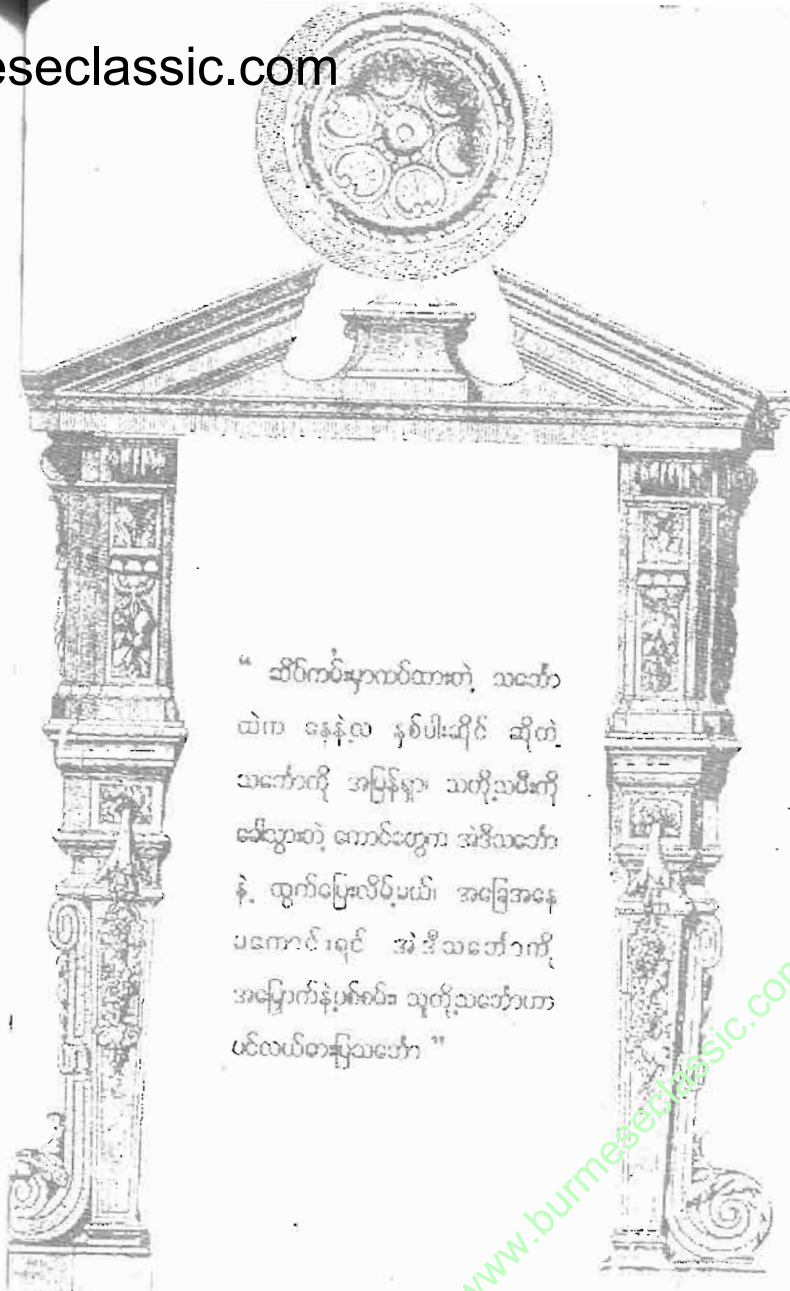 eseclassic.com
“ ဆိပ်ကမ်းမှာကပ်ထားတဲ့ သင်္ဘော
ထဲက နေနဲ့လ နှစ်ပါးဆိုင် ဆိုတဲ့
သင်္ဘောကို အမြန်ရှာ၊ သကို့သမီးကို
ခေါ်သွားတဲ့ ကောင်တွေက အဲဒီသင်္ဘော
နဲ့ ထွက်ပြေးလိမ့်မယ်၊ အခြေအနေ
မကောင်းရင် အဲဒီသင်္ဘောကို
အမြောက်နဲ့ပစ်စမ်း၊ သူတို့သင်္ဘောဟာ
ပင်လယ်ဓားပြသင်္ဘော ”
www.burmeseclassic.com